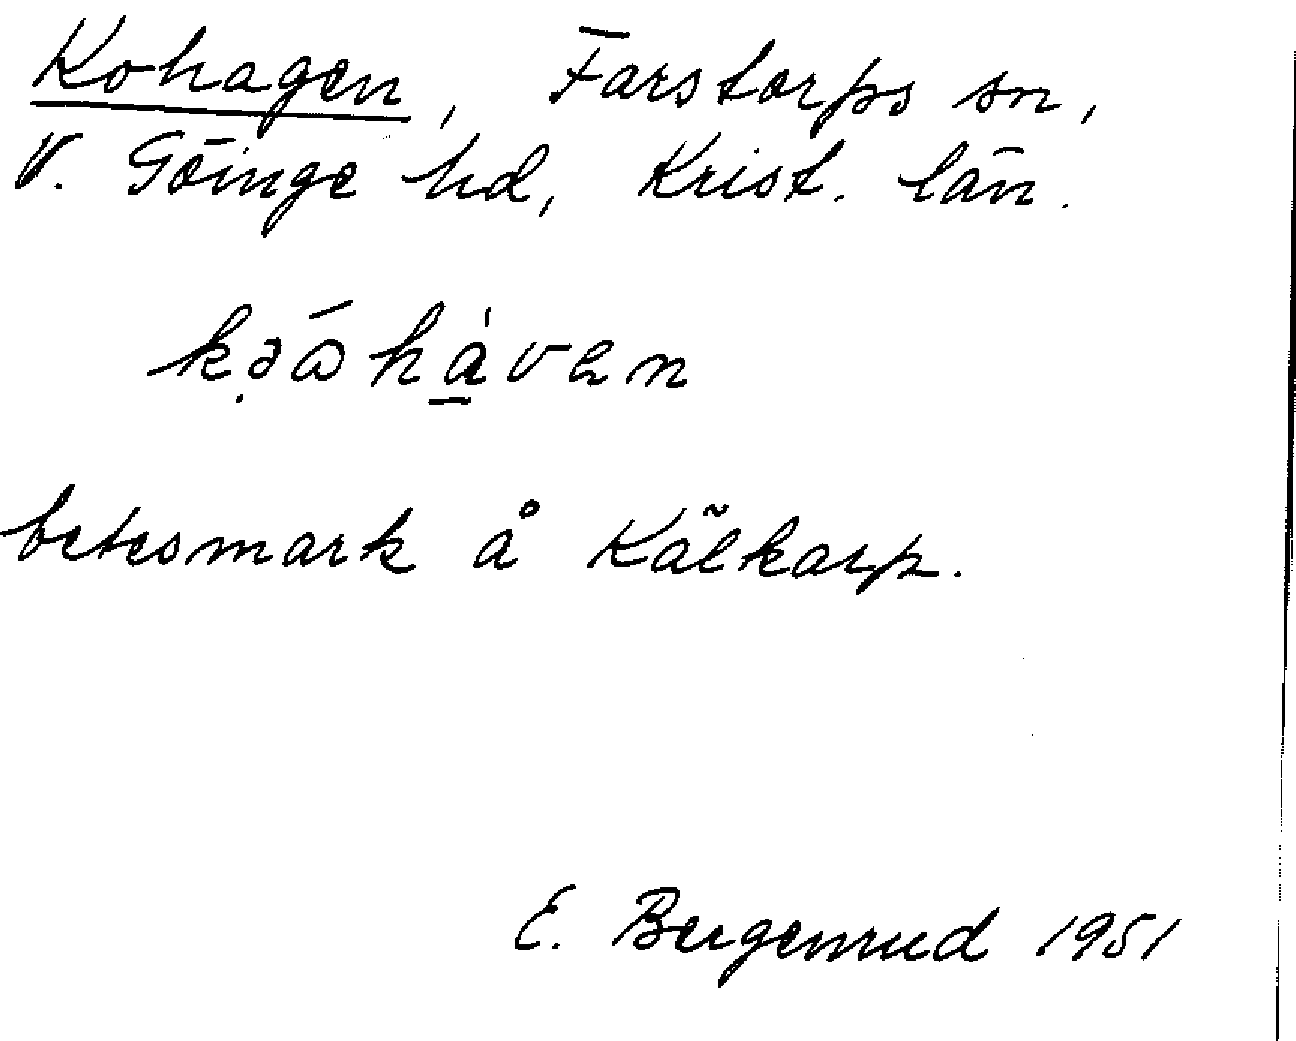 Kohagen, Farstorps sn,
V. Göinge hd, Krist. län.
kə̣ɷ́hа̱̀vɐn
betesmark å Kälkarp.
E. Bergenrud 1951